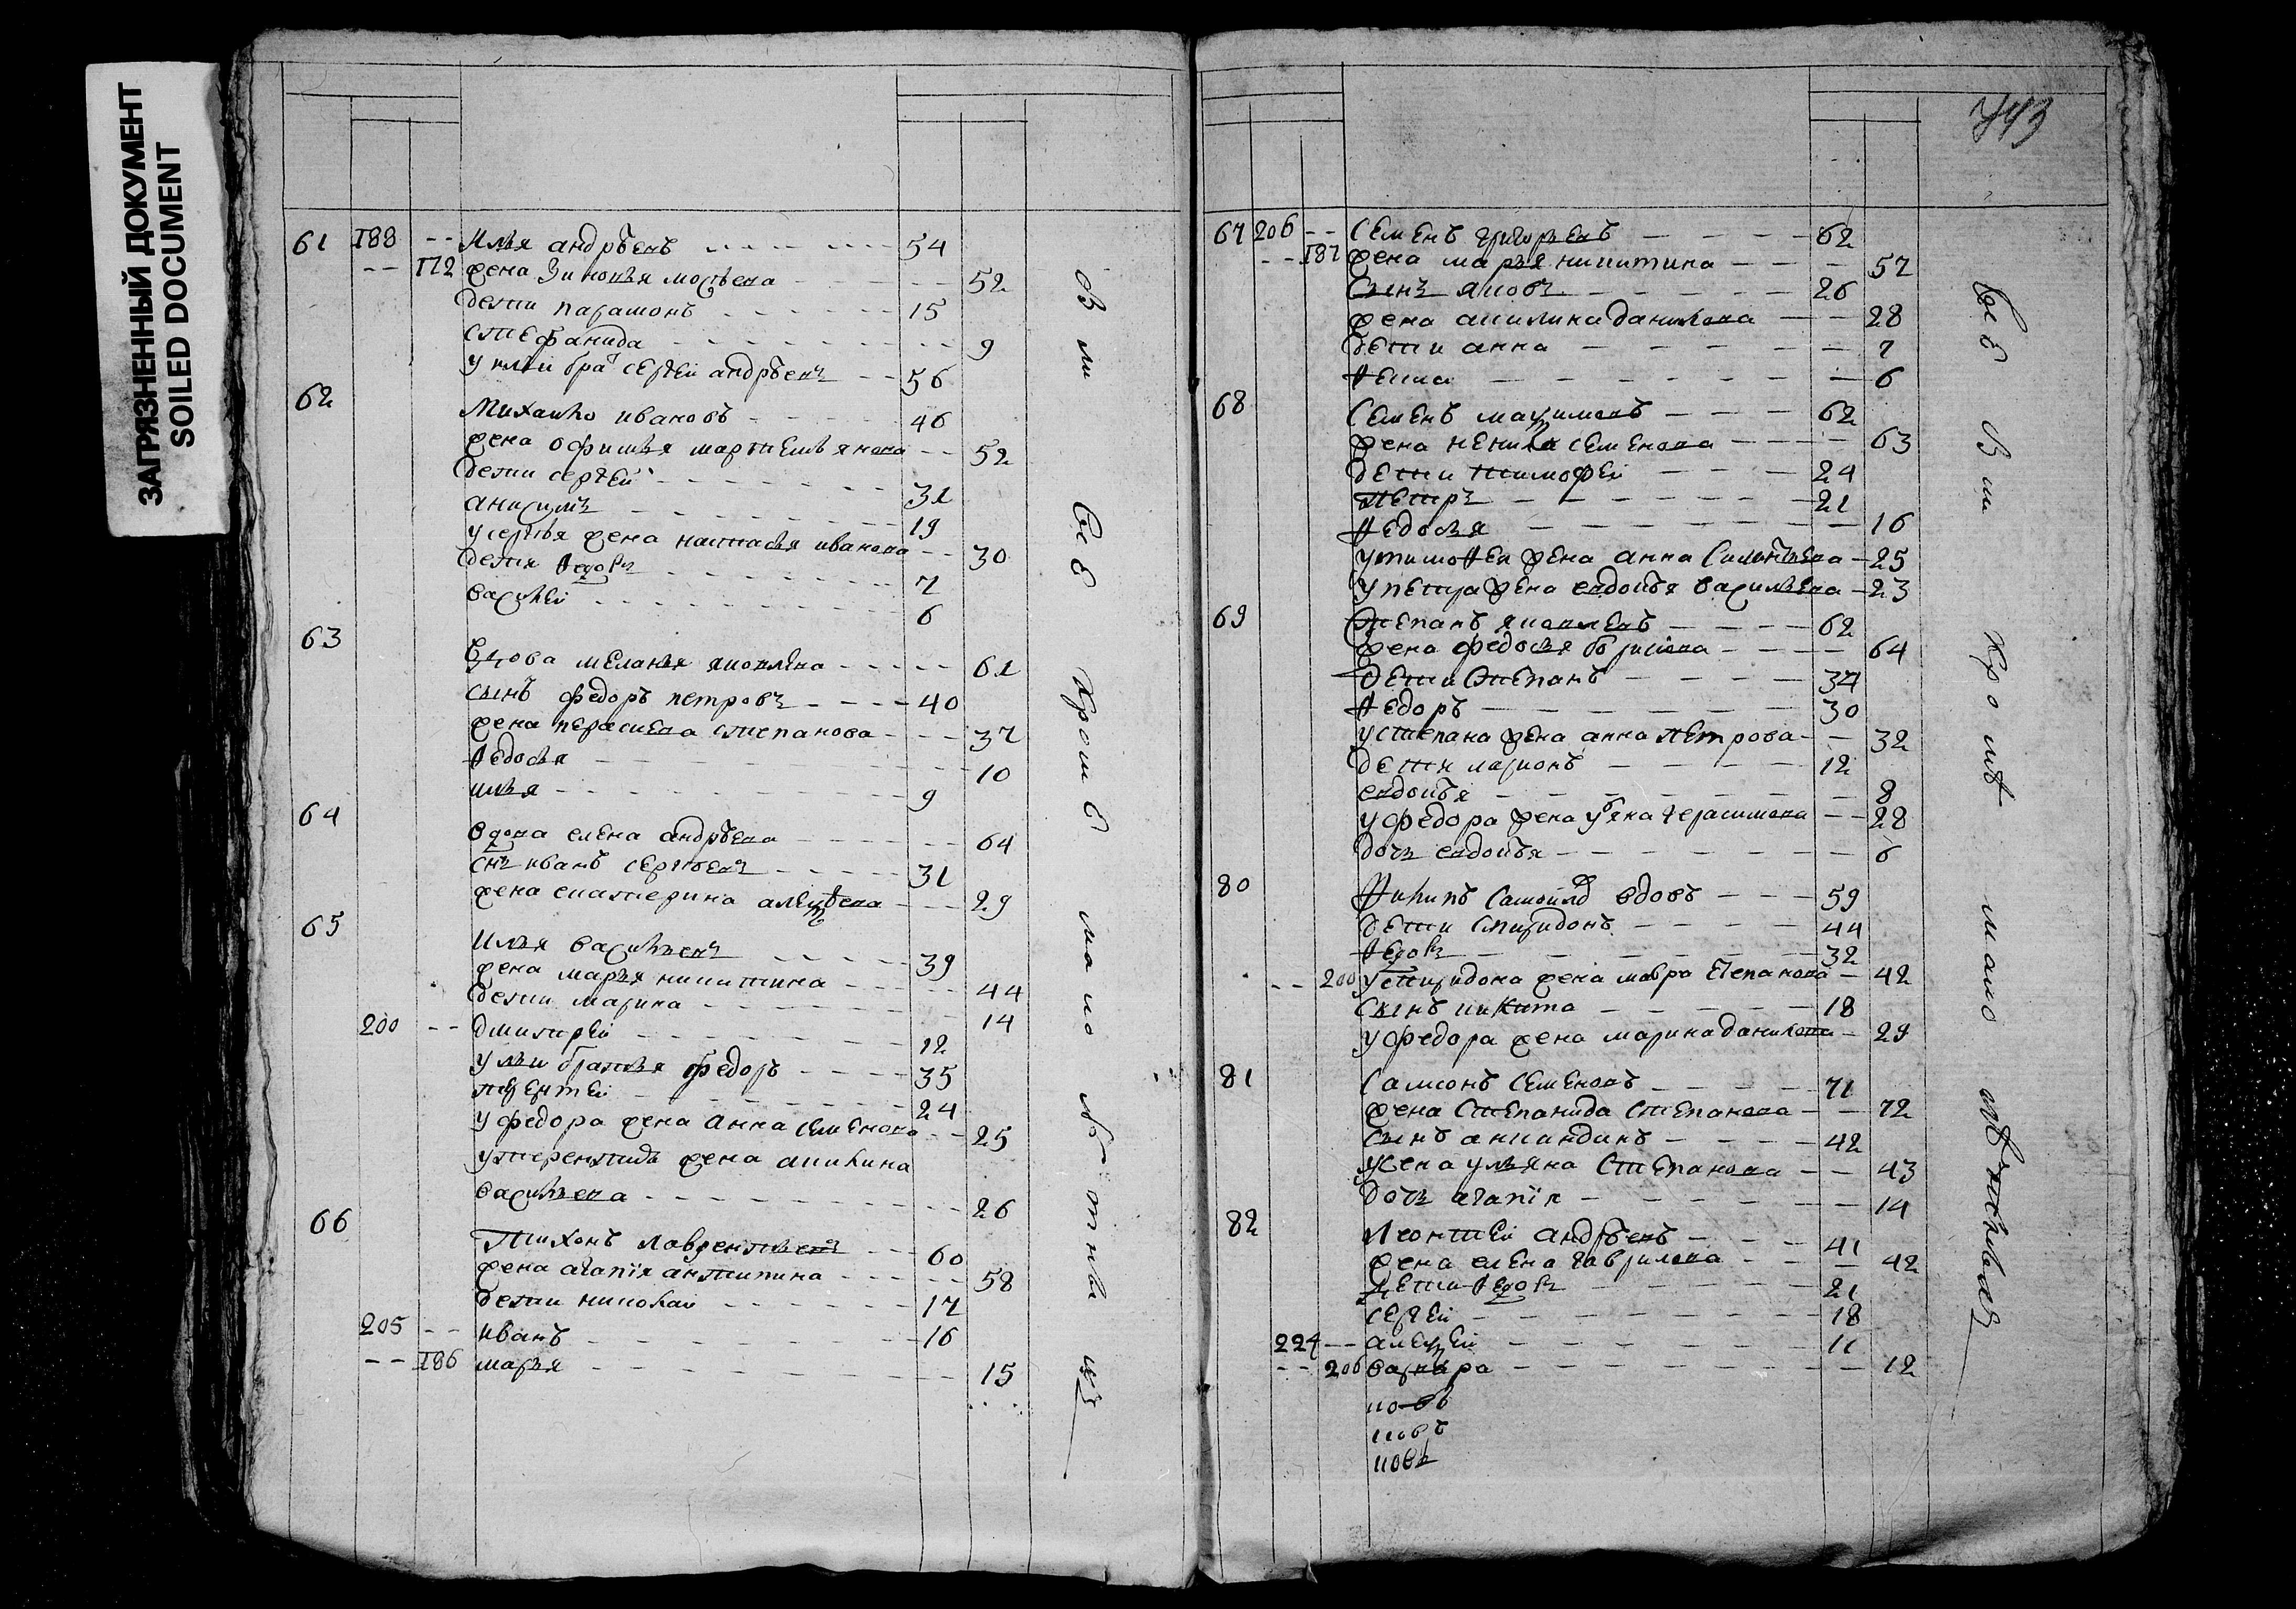 ЗАГРЯЗНЕННЫЙ ДОКУМЕНТ
SOILED DOCUMENT
61 188 -- Илья андрѣевъ 54
-- 172 жена Зиновья мосѣева 52
дети парамонъ 15
степанида 9
у ильи бра сергѣй андрѣевъ 56
62 Михайло ивановъ 46
жена офимья мартемьянова 52
дети сергѣй 31
анисимъ 19
у сергѣя жена настасья иванова 30
дети ѳедоръ 7
василей 6
63 вдова меланья яковлева 61
сынъ федоръ петровъ 40
жена парасковья степанова 37
ѳедосья 10
илья 9
64 вдова елена андрѣева 64
снъ иванъ сергѣевъ 31
жена екатерина алексѣева 29
65 Илья васильевъ 39
жена марья никитина 44
дети марина 14
200 -- дмитрей 12
у ильи братья федоръ 35
терентей 24
у федора жена анна семенова 25
у терентия жена акилина
васильева 26
66 Тихонъ лаврентьевъ 60
жена агапiя антипина 58
дети николай 17
205 -- иванъ 16
-- 186 марья 15
Вѣ
все
кроме
мало
лѣтныхъ
743
67 206 -- Семенъ григорьевъ 62
-- 187 жена марья никитина 57
сынъ яковъ 26
жена акилина данилова 28
дети анна 7
ѳекла 6
68 Семенъ максимовъ 62
жена ненила семенова 63
дети тимофей 24
петръ 21
ѳедосья 16
у тимоѳея жена анна 25
у петра жена евдокѣя васильева 23
69 Степанъ яковлевъ 62
жена федосья борисова 64
дети степанъ 34
ѳедоръ 30
у степана жена анна петрова 32
дети ларионъ 12
евдокѣя 8
у федора жена ульяна герасимова 28
дочь евдокѣя 6
80 ѳилипъ самойлов вдовъ 59
дети спиридонъ 44
ѳедоръ 32
-- 200 у спиридона жена мавра степанова 42
сынъ никита 18
у федора жена марина данилова 29
81 Самсонъ семеновъ 71
жена степанида степанова 72
сынъ акиндинъ 42
жена ульяна степанова 43
дочь агапiя 14
82 Леонтей андрѣевъ 41
жена елена гаврилова 42
дети ѳедоръ 21
сергѣй 18
224 -- алексѣй 11
-- 206 варвара 12
ковъ
ковъ
ковъ
все
кромѣ
мало
лѣтныхъ